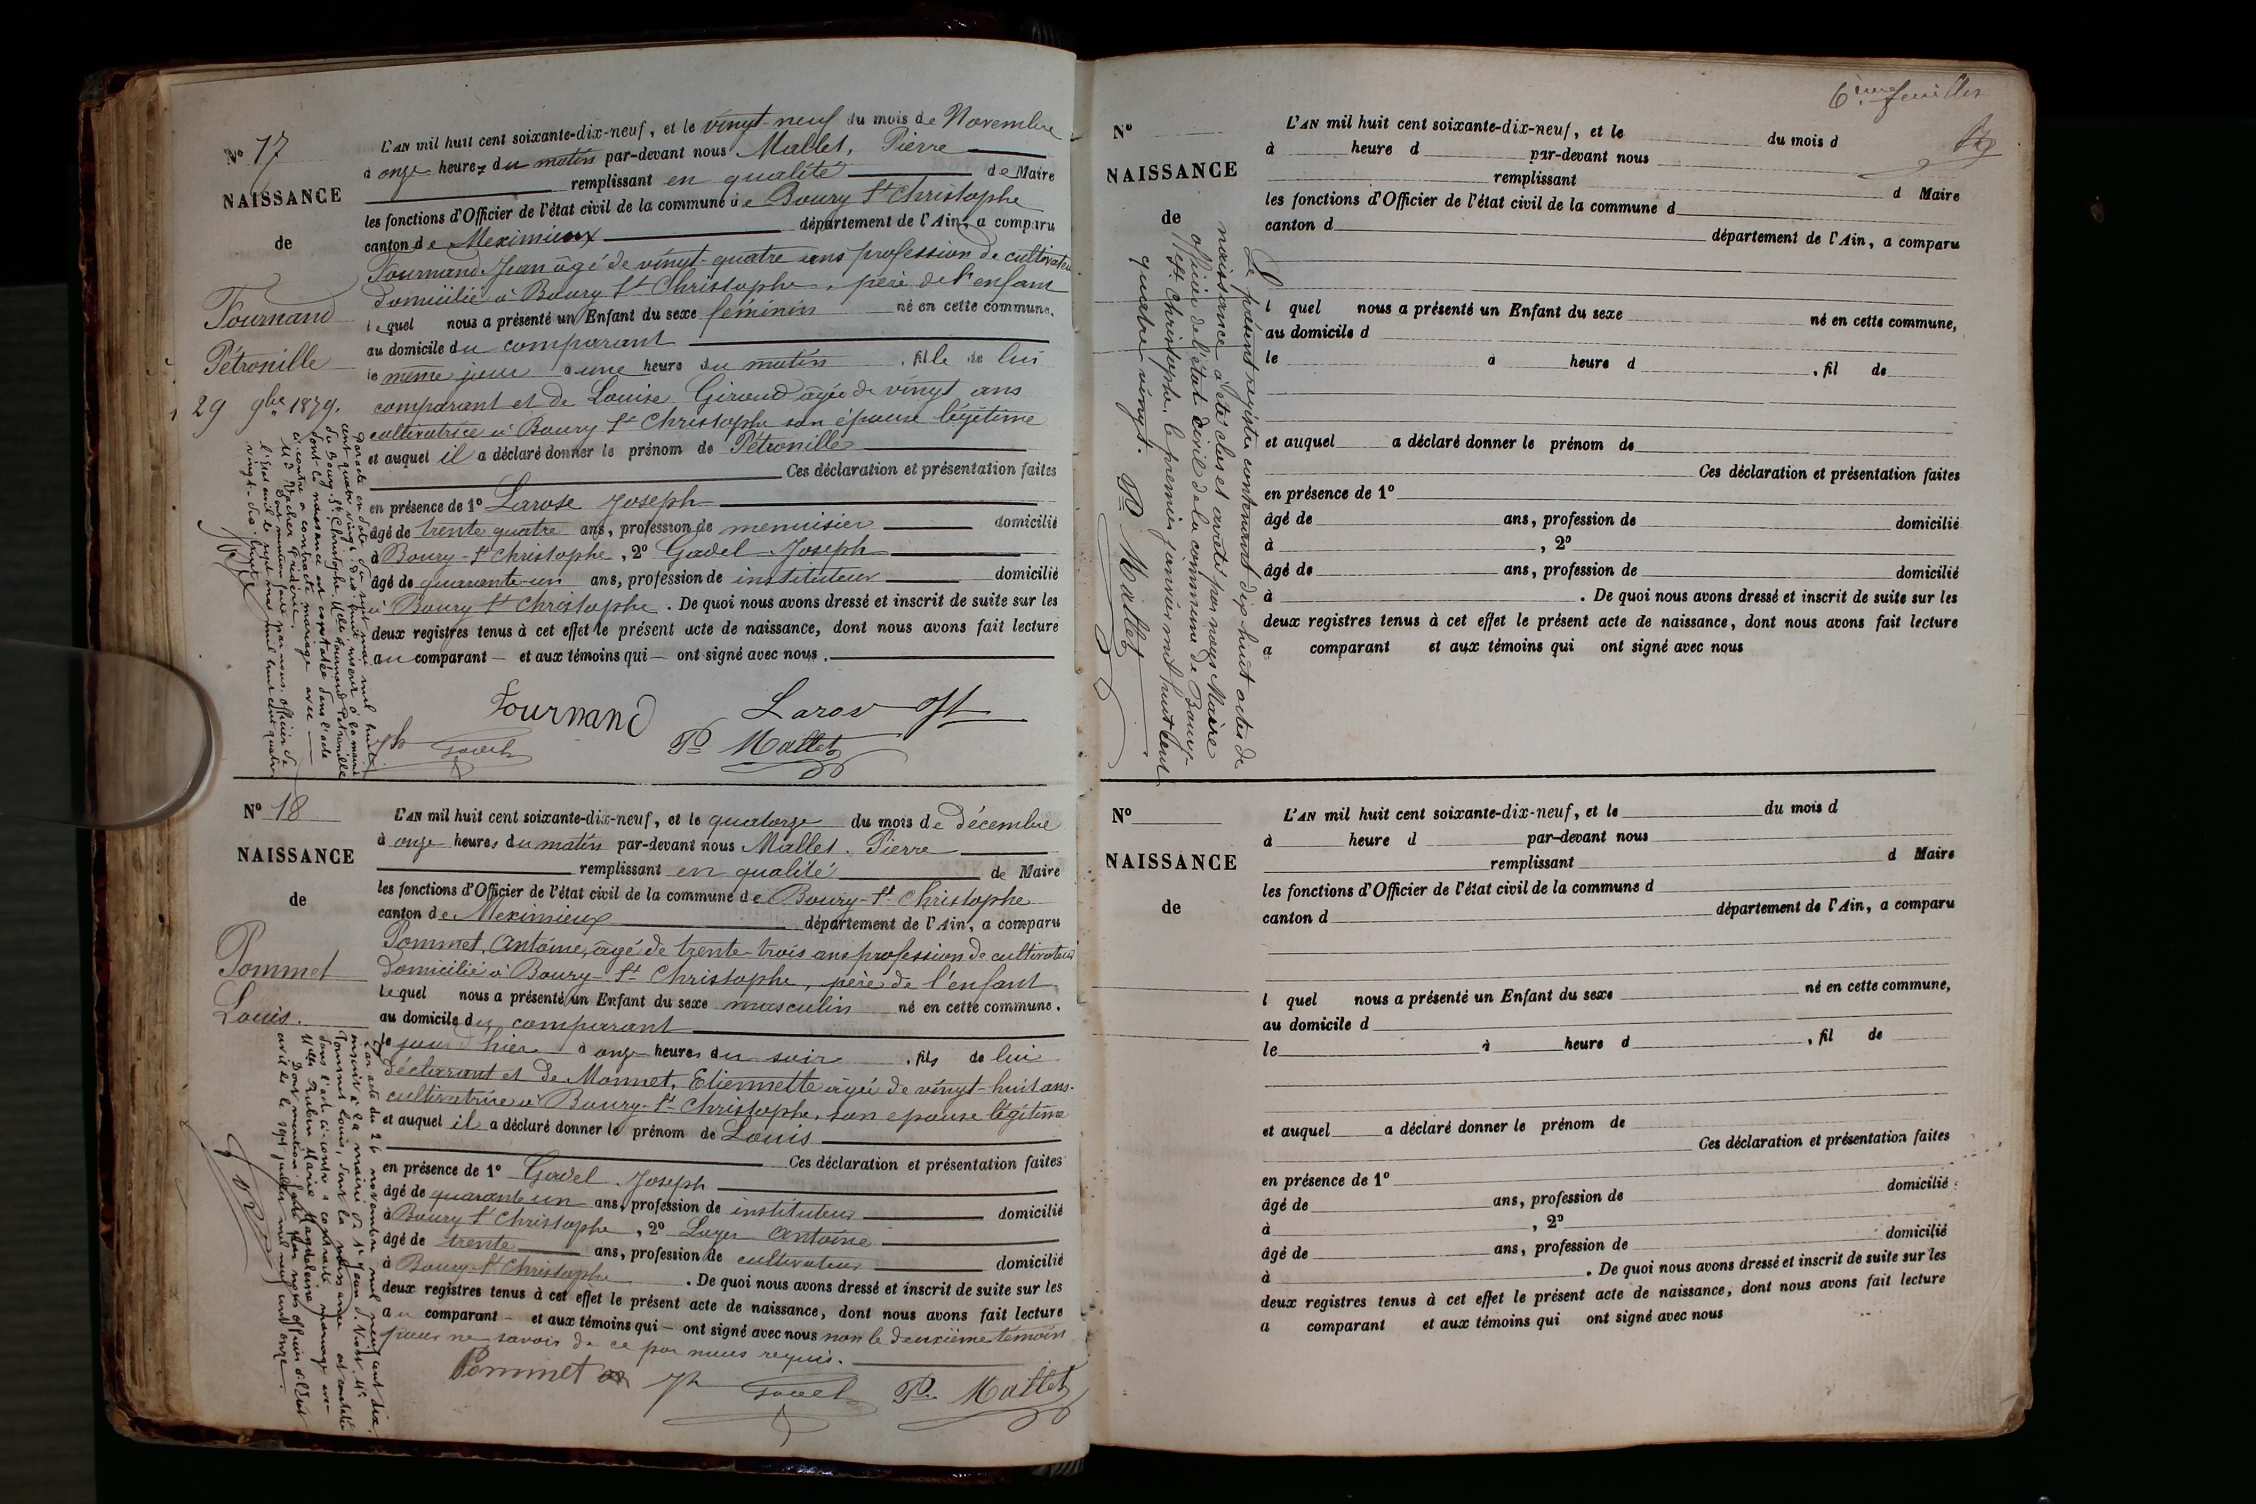 N° 17
NAISSANCE
de
Fournand
Pétronille
29 9bre 1879.
L'AN mil huit cent soixante-dix-neuf, et le vingt-neuf du mois de Novembre
à onze heures du matin par-devant nous Mallet, Pierre
remplissant en qualité de Maire
les fonctions d'Officier de l'état civil de la commune de Boury St Christophe
canton de Meximieux département de l'Ain, a comparu
Fournand Jean âgé de vingt-quatre ans profession de cultivateur
domicilié à Boury St Christophe, père de l'enfant
lequel nous a présenté un Enfant du sexe féminin né en cette commune,
au domicile du comparant
le même jour à une heure du matin, fille de lui
comparant et de Louise Giroud âgée de vingt ans
cultivatrice à Boury St Christophe son épouse légitime
et auquel il a déclaré donner le prénom de Pétronille
Ces déclaration et présentation faites
en présence de 1° Larose Joseph
âgé de trente quatre ans, profession de menuisier domicilié
à Boury-St Christophe, 2° Gadel Joseph
âgé de quarante-un ans, profession de instituteur domicilié
à Boury St Christophe. De quoi nous avons dressé et inscrit de suite sur les
deux registres tenus à cet effet le présent acte de naissance, dont nous avons fait lecture
au comparant et aux témoins qui ont signé avec nous.
Fournand
P. Mallet
Par acte en date du sept mai mil huit
cent quatre vingt dix huit inscrit à la mairie
du Bourg St Christophe, Melle Fournand Pétronille
dont la naissance est constatée dans l'acte
ci-contre a contracté mariage avec
Mr Vacher Frédéric.
Dont mention faite par nous officier de
l'état civil le sept mai mil huit cent quatre
vingt-dix huit
N° 18
NAISSANCE
de
Pommet
Louis.
L'AN mil huit cent soixante-dix-neuf, et le quatorze du mois de décembre
à onze heures du matin par-devant nous Mallet. Pierre
remplissant en qualité de Maire
les fonctions d'Officier de l'état civil de la commune de Boury-St Christophe
canton de Meximieux département de l'Ain, a comparu
Pommet, Antoine, âgé de trente-trois ans profession de cultivateur
domicilié à Boury-St Christophe, père de l'enfant
lequel nous a présenté un Enfant du sexe masculin né en cette commune,
au domicile du comparant
le jour d'hier à onze heures du soir, fils de lui
déclarant et de Monnet, Etiennette âgée de vingt-huit ans.
cultivatrice à Boury-St Christophe, son épouse légitime
et auquel il a déclaré donner le prénom de Louis
Ces déclaration et présentation faites
en présence de 1° Gadel Joseph
âgé de quarante un ans, profession de instituteur domicilié
à Boury St Christophe, 2° Luyer Antoine
âgé de trente ans, profession de cultivateur domicilié
à Boury-St Christophe. De quoi nous avons dressé et inscrit de suite sur les
deux registres tenus à cet effet le présent acte de naissance, dont nous avons fait lecture
au comparant et aux témoins qui ont signé avec nous non le deuxième témoin
pour ne savoir de ce par nous requis.
Pommet P. Mallet
Par acte du 26 novembre mil neuf cent dix,
inscrit à la mairie de St Jean de Niost, Mr
Pommet Louis, dont la naissance est constatée
dans l'acte ci-contre a contracté mariage avec
Melle Rubin Marie Magdeleine
Dont mention faite par nous officier de l'Etat
civil le sept juillet mil neuf cent onze.
6ème feuillet
N°
NAISSANCE
de
L'AN mil huit cent soixante-dix-neuf, et le du mois d
à heure d par-devant nous
remplissant d Maire
les fonctions d'Officier de l'état civil de la commune d
canton d département de l'Ain, a comparu
l quel nous a présenté un Enfant du sexe né en cette commune,
au domicile d
le à heure d , fil de
et auquel a déclaré donner le prénom de
Ces déclaration et présentation faites
en présence de 1°
âgé de ans, profession de domicilié
à , 2°
âgé de ans, profession de domicilié
à . De quoi nous avons dressé et inscrit de suite sur les
deux registres tenus à cet effet le présent acte de naissance, dont nous avons fait lecture
a comparant et aux témoins qui ont signé avec nous
Le présent registre contenant dix-huit actes de
naissance a été clos et arrêté par nous Maire
officier de l'état civil de la commune de Boury-
St Christophe, le premier janvier mil huit cent
quatre vingt.
P. Mallet
N°
NAISSANCE
de
L'AN mil huit cent soixante-dix-neuf, et le du mois d
à heure d par-devant nous
remplissant d Maire
les fonctions d'Officier de l'état civil de la commune d
canton d département de l'Ain, a comparu
l quel nous a présenté un Enfant du sexe né en cette commune,
au domicile d
le à heure d , fil de
et auquel a déclaré donner le prénom de
Ces déclaration et présentation faites
en présence de 1°
âgé de ans, profession de domicilié
à , 2°
âgé de ans, profession de domicilié
à . De quoi nous avons dressé et inscrit de suite sur les
deux registres tenus à cet effet le présent acte de naissance, dont nous avons fait lecture
a comparant et aux témoins qui ont signé avec nous